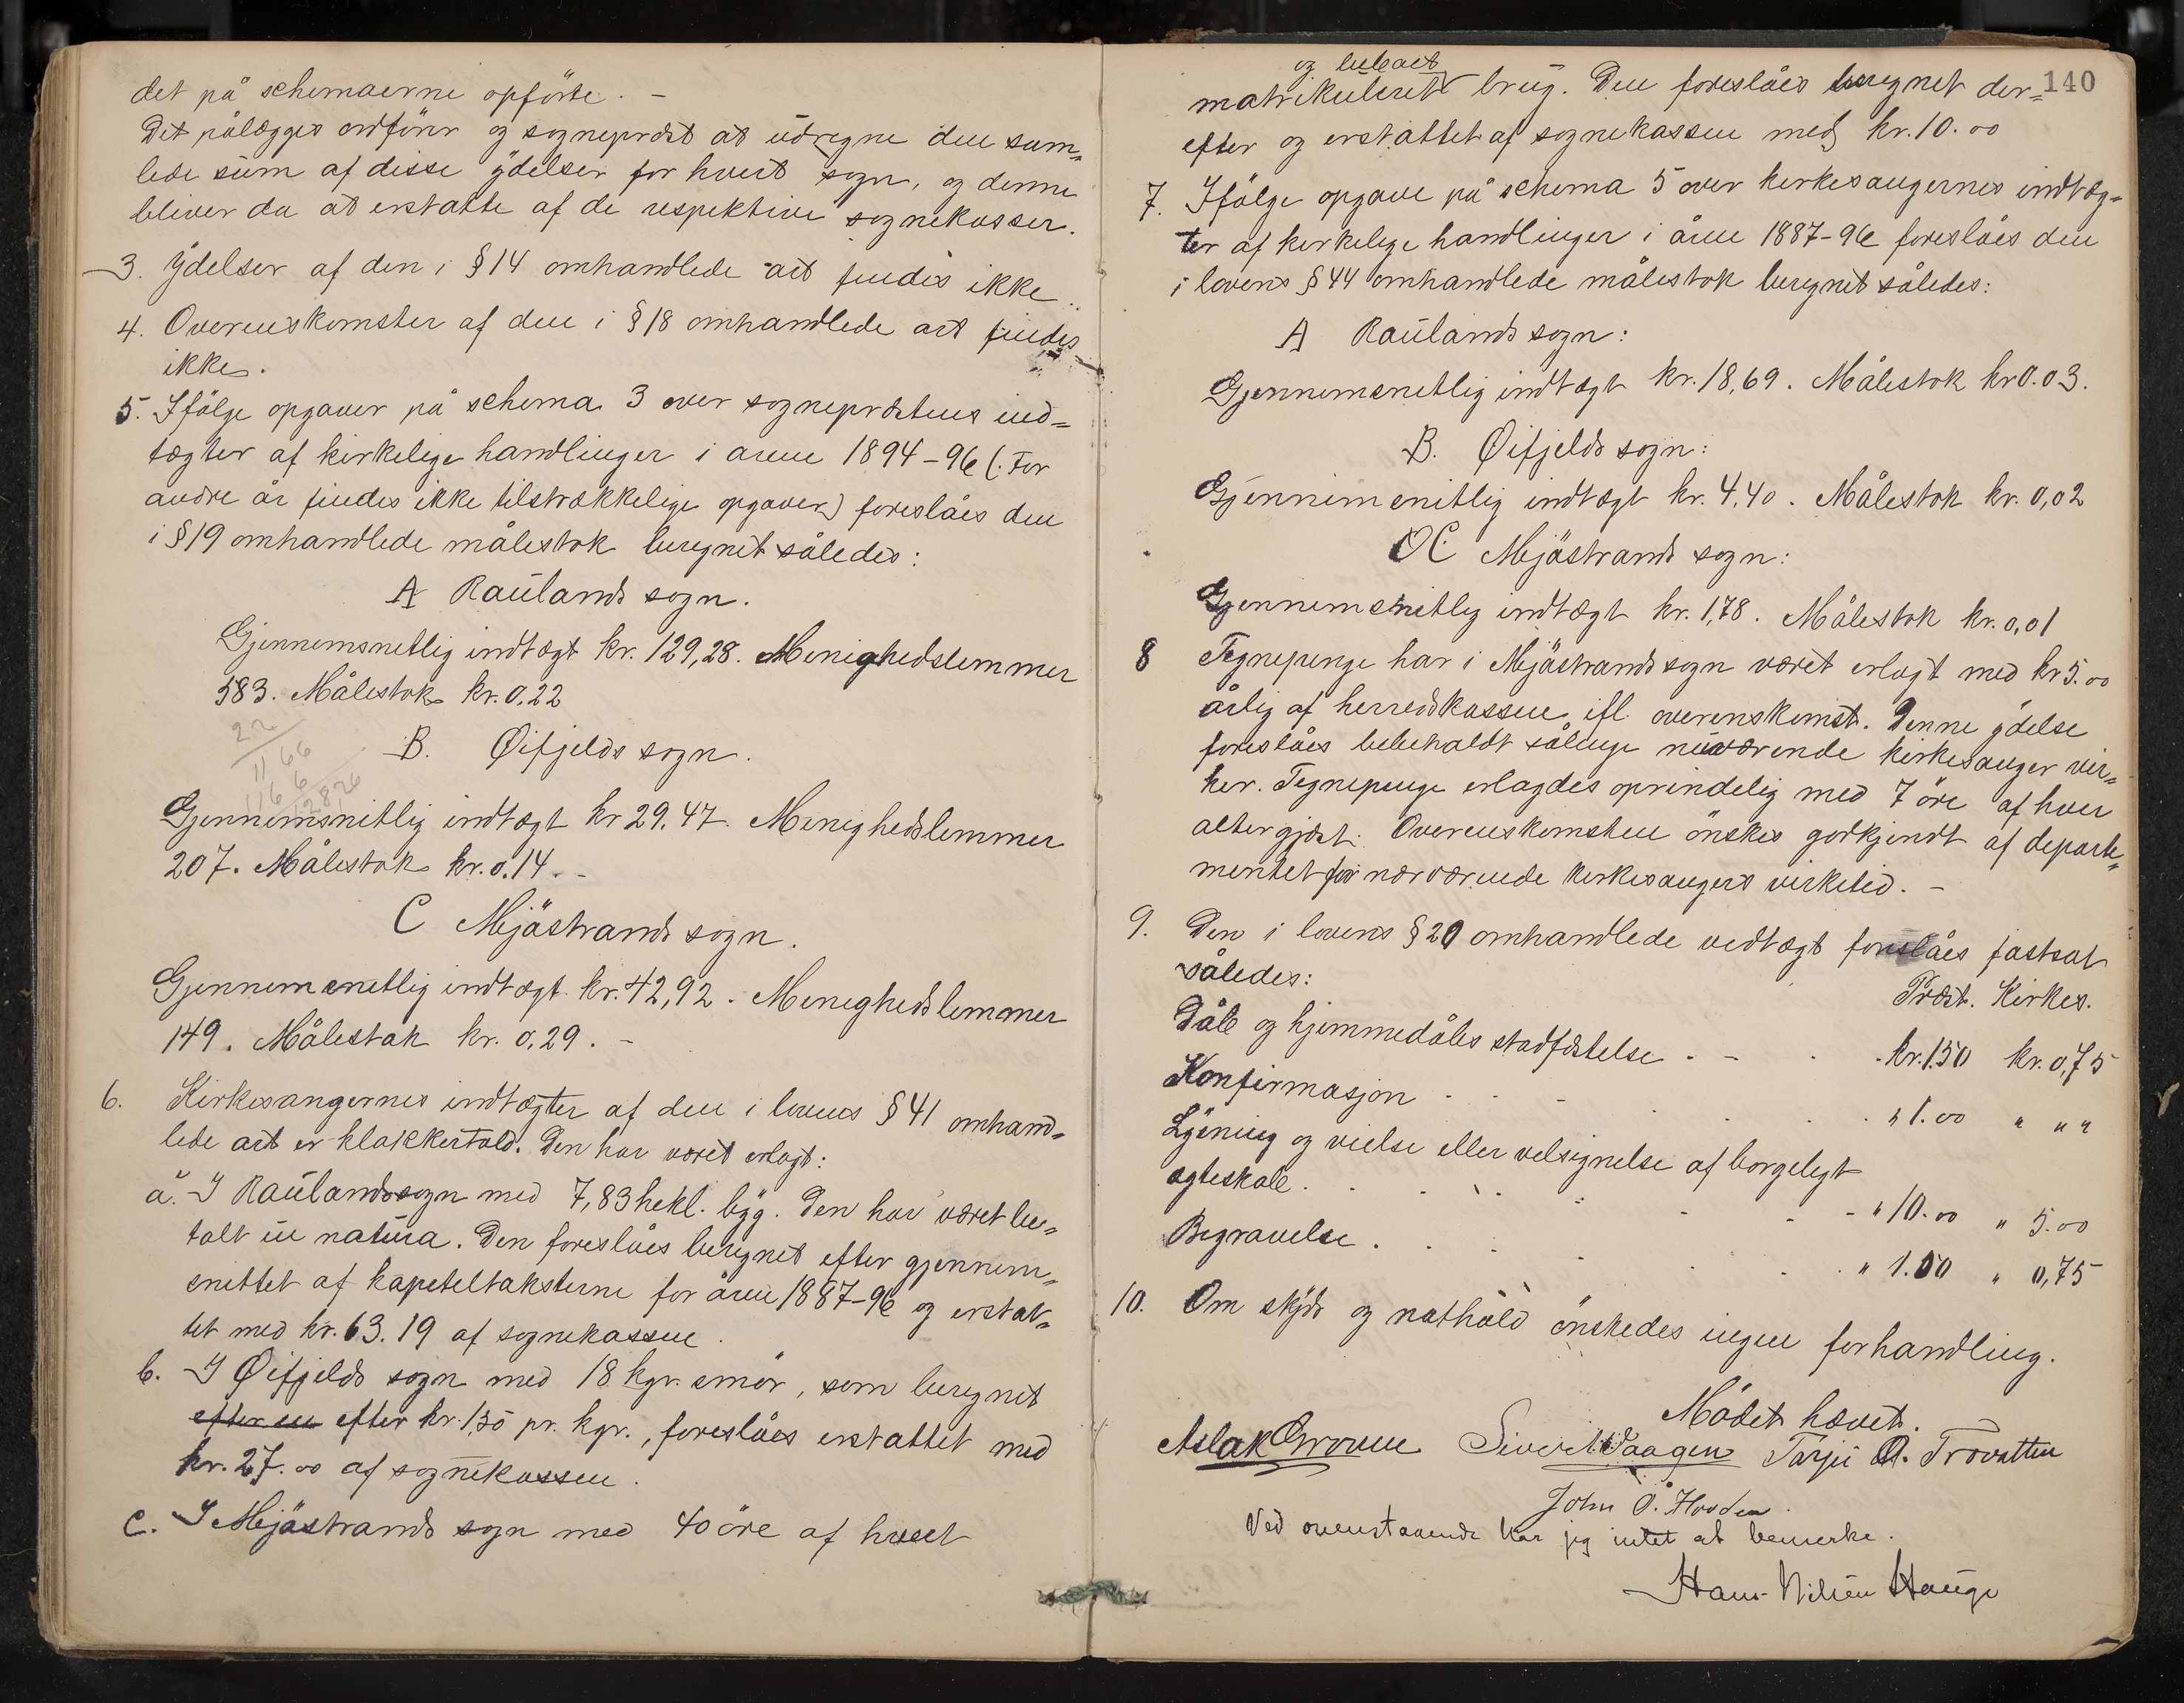 det på schemaerne opførte. -
Det pålægges ordfører og sognepræst at udregne den sam=
lede sum af disse ydelser for hvert sogn, og denne
bliver da at erstatte af de respektive sognekasser.
3. Ydelser af den i § 14 omhandlede art findes ikke.
4. Overenskomster af den i § 18 omhandlede art findes
ikke.
5. Ifölge opgaver på schema 3 over sogneprestens ind=
tægter af kirkelige handlinger i årene 1894-96 (: For
andre år findes ikke tilstrækkelige opgaver) foreslåes den
i § 19 omhandlede målestok beregnet således:
A Raulands sogn.
Gjennemsnitlig indtægt kr. 129,28. Menighedslemmer
583. Målestok kr. 0.22
22
1166
1166
12826
B. Øifjelds sogn.
Gjennemsnitlig indtægt kr 29.47. Menighedslemmer
207. Målestok kr. 0.14. -
C Mjöstrands sogn.
Gjennemsnitlig indtægt kr. 42,92. Menighedslemmer
149. Målestok kr. 0,29. -
6. Kirkesangernes indtægter af den i lovens § 41 omhand=
lede art er klokkertold. Den har været erlagt:
a. I Raulands sogn med 7,83 hekl. byg. Den har været be=
talt in natura. Den foreslåes beregnet efter gjennem=
snittet af kapiteltaksterne for årene 1887-96 og erstat=
tet med kr. 63.19 af sognekassen.
b. I Øifjelds sogn med 18 kgr. smör, som beregnet
efter en efter kr. 1,50 pr. kgr., foreslåes erstattet med
kr. 27.00 af sognekassen.
c. I Mjöstrands sogn med 40 öre af hvert
140
og beboet
matrikuleret brug. Den foreslåes beregnet der=
efter og erstattet af sognekassen med kr. 10.00
7. Ifölge opgave på schema 5 over kirkesangernes indtæg=
ter af kirkelige handlinger i årene 1887-96 foreslåes den
i lovens § 44 omhandlede målestok beregnet således:
A Raulands sogn:
Gjennemsnitlig indtægt kr. 18,69. Målestok kr 0.03.
B. Øifjelds sogn:
Gjennemsnitlig indtægt kr. 4,40. Målestok kr. 0,02
C Mjöstrands sogn:
Gjennemsnitlig indtægt kr. 1,78. Målestok kr. 0,01
8 Tegnepenge har i Mjöstrands sogn været erlagt med kr 5.00
årlig af herredskassen ifl. overenskomst. Denne ydelse
foreslåes bebeholdt sålenge nuværende kirkesanger vir=
ker. Tegnepenge erlagdes oprindelig med 7 öre af hver
altergjæst. Overenskomsten önskes godkjendt af departe=
mentet for nærværende kirkesangers virketid. -
9. Den i lovens § 20 omhandlede vedtægt foreslåes fastsat
således:
Præst. Kirkes.
Dåb og hjemmedåbs stadfæstelse . - . . kr. 1.50 kr. 0,75
Konfirmasjon . . - . . . " 1.00 " " "
Lysning og vielse eller velsignelse af borgeligt
ægteskab . . . . . - - - " 10.00 " 5.00
Begravelse . . . . . . . " 1.50 " 0,75
10. Om skyds og nathold önskedes ingen forhandling.
Mödet hævet.
Aslak Groven Sivert Vaagen Tarjei A. Trovatten
John O. Hovden.
Ved ovenstaaende har jeg intet at bemerke.
Hans Nilsen Hauge